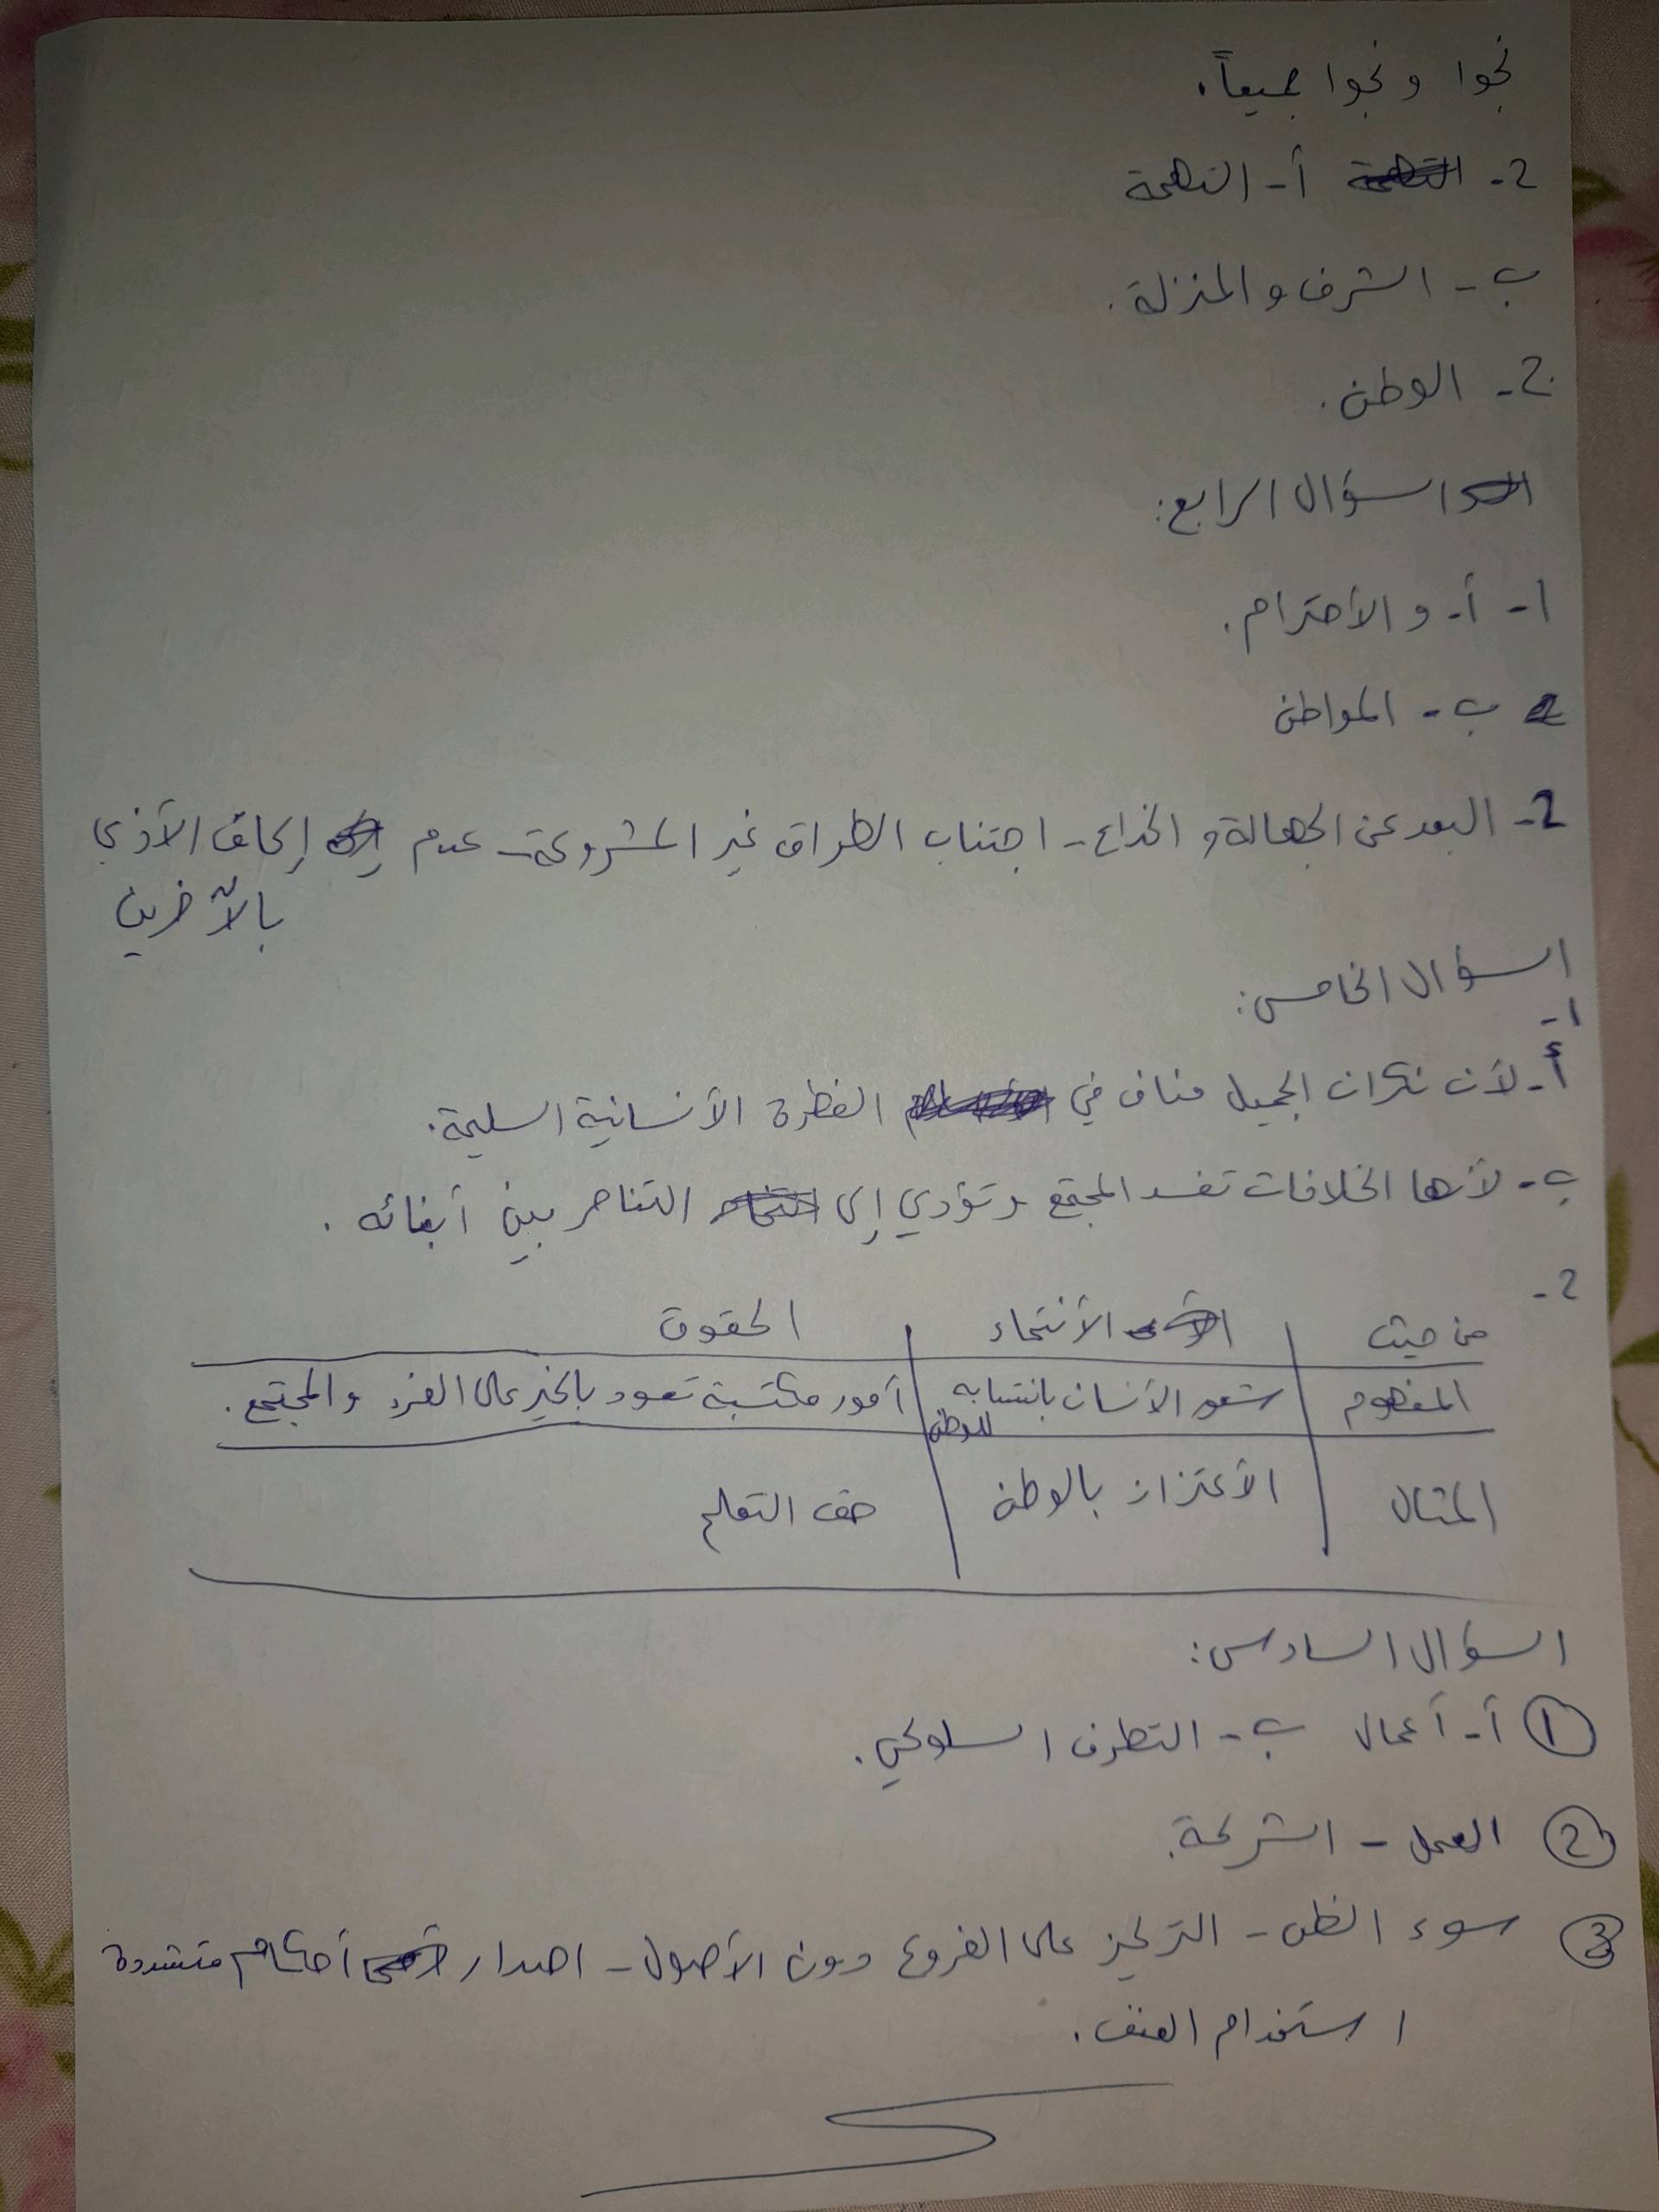 نجوا و نجوا جميعاً.
2- أ- التهمة
ب- الشرف والمنزلة.
2- الوطن.
السؤال الرابع:
1- أ- و الأحترام.
ب- المواطن
2- البعد عن الجهالة و الخداع - اجتناب الطراق غير المشروعة - عدم إلحاق الأذى
بالآخرين
السؤال الخامس:
1-
أ- لأن نكران الجميل مناف في الفطرة الأنسانية السليمة.
ب- لأنها الخلافات تفسد المجتمع و تؤدي إلى التناحر بين أبنائه.
2-
من حيث | الأنتماء | الحقوق
المفهوم | شعور الأنسان بانتسابه للوطن | أمور مكتسبة تعود بالخير على الفرد والمجتمع.
المثال | الأعتزاز بالوطن | حق التعلم
السؤال السادس:
1 أ- أعمال ب- التطرف السلوكي.
2 العمل - الشركة.
3 سوء الظن - التركيز على الفروع دون الأصول - اصدار أحكام متشددة
استخدام العنف.